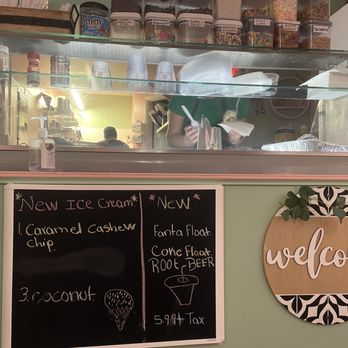 *New Ice Cream*
1. Caramel Cashew
Chip.
3. Coconut
*New*
Fanta Float
Coke Float
Root-Beer
5.99+ Tax
welco